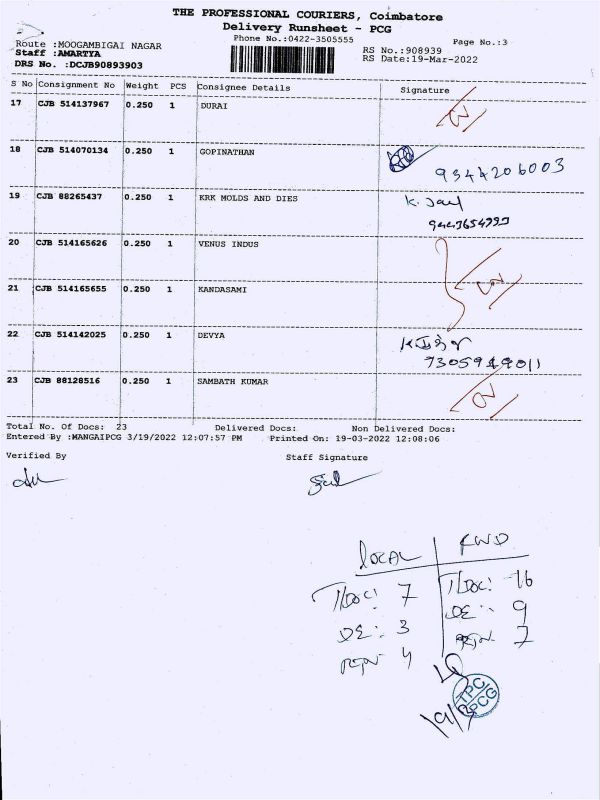 THE PROFESSIONAL COURIERS, Coimbatore
Delivery Runsheet - PCG
Phone No.:0422-3505555
Page No.:3
Route :MOOGAMBIGAI NAGAR
RS No.:908939
Staff :AMARTYA
RS Date:19-Mar-2022
DRS No. :DCJB90893903
S No Consignment No Weight PCS Consignee Details Signature
17 CJB 514137967 0.250 1 DURAI
18 CJB 514070134 0.250 1 GOPINATHAN
9344206003
19 CJB 88265437 0.250 1 KRK MOLDS AND DIES
20 CJB 514165626 0.250 1 VENUS INDUS
21 CJB 514165655 0.250 1 KANDASAMI
22 CJB 514142025 0.250 1 DEVYA
23 CJB 88128516 0.250 1 SAMBATH KUMAR
Total No. Of Docs: 23 Delivered Docs: Non Delivered Docs:
Entered By :MANGAIPCG 3/19/2022 12:07:57 PM Printed On: 19-03-2022 12:08:06
Verified By Staff Signature
LOCAL FWD
T/DOC: 7 T/DOC: 16
DE: 3 DE: 9
RTN 4 RTN 7
TPC
PCG